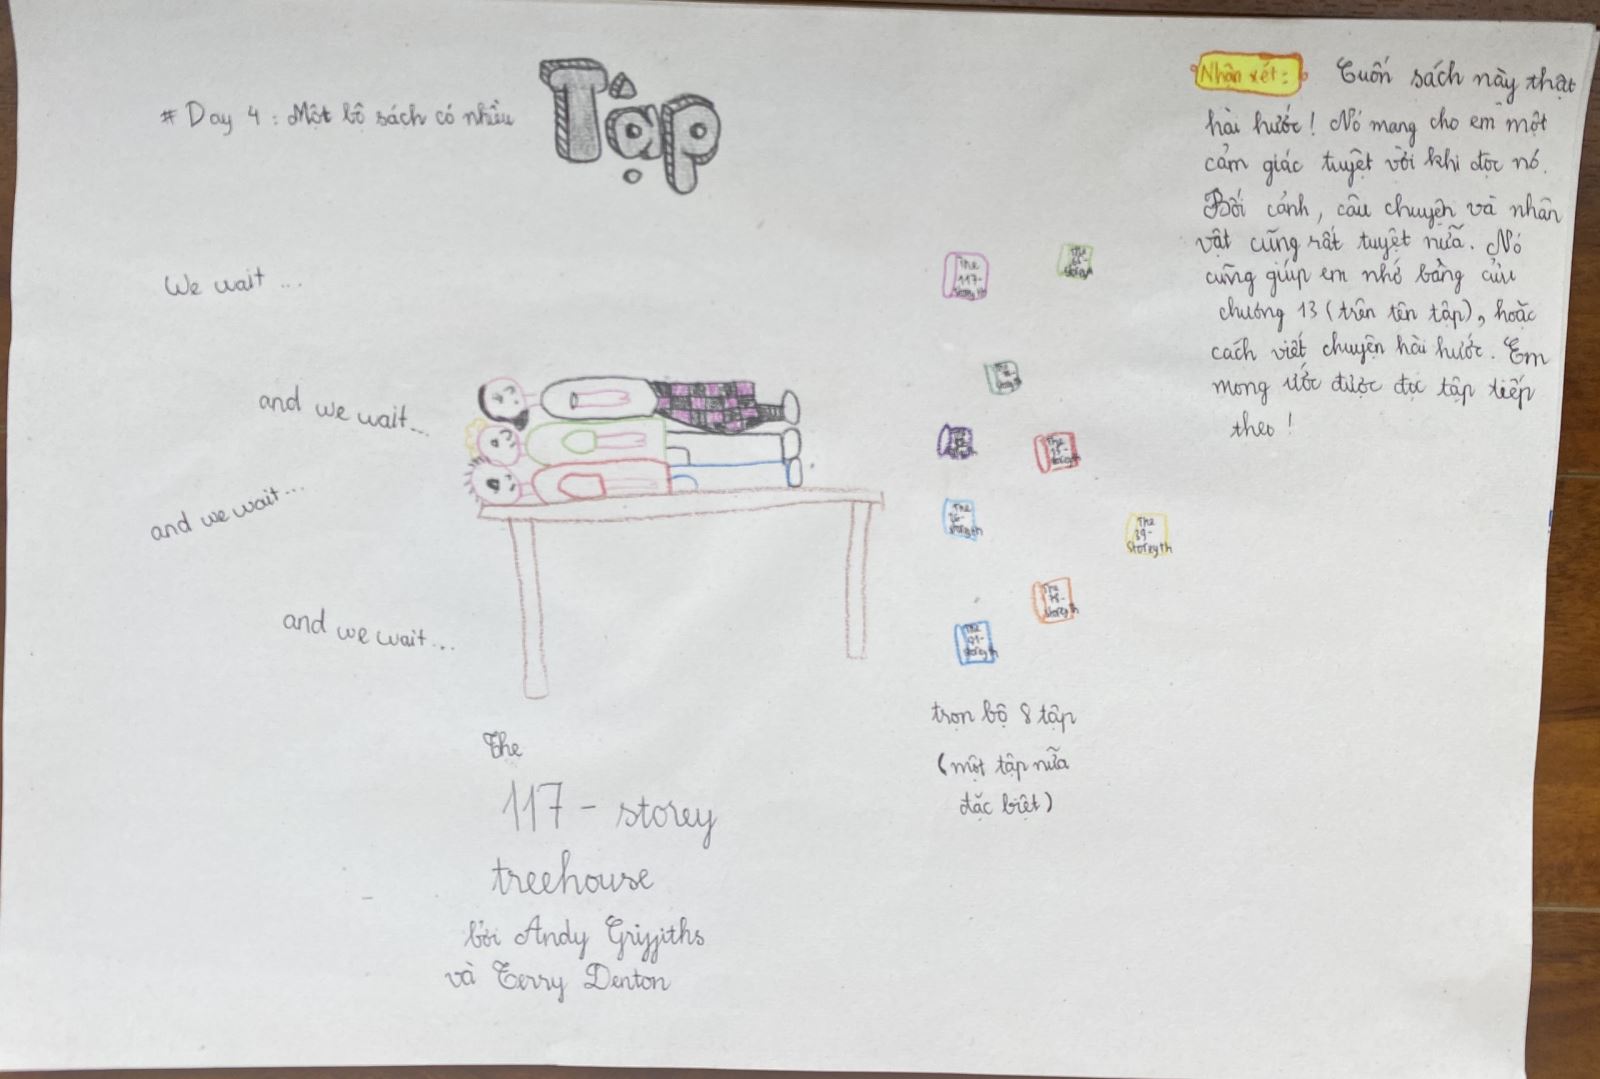 # Day 4 : Một bộ sách có nhiều Tập
We wait ...
and we wait...
and we wait...
and we wait...
The
117 - storey
treehouse
bởi Andy Griffiths
và Terry Denton
The
117-
Storeyth
The
65-
Storeyth
The
Storeyth
The
Storeyth
The
Storeyth
The
26-
Storeyth
The
39-
Storeyth
The
78-
Storeyth
The
91-
Storeyth
trọn bộ 8 tập
(một tập nữa
đặc biệt)
Nhận xét: Cuốn sách này thật
hài hước! Nó mang cho em một
cảm giác tuyệt vời khi đọc nó.
Bối cảnh, câu chuyện và nhân
vật cũng rất tuyệt nữa. Nó
cũng giúp em nhớ bảng cửu
chương 13 (trên tên tập), hoặc
cách viết chuyện hài hước. Em
mong ước được đọc tập tiếp
theo!